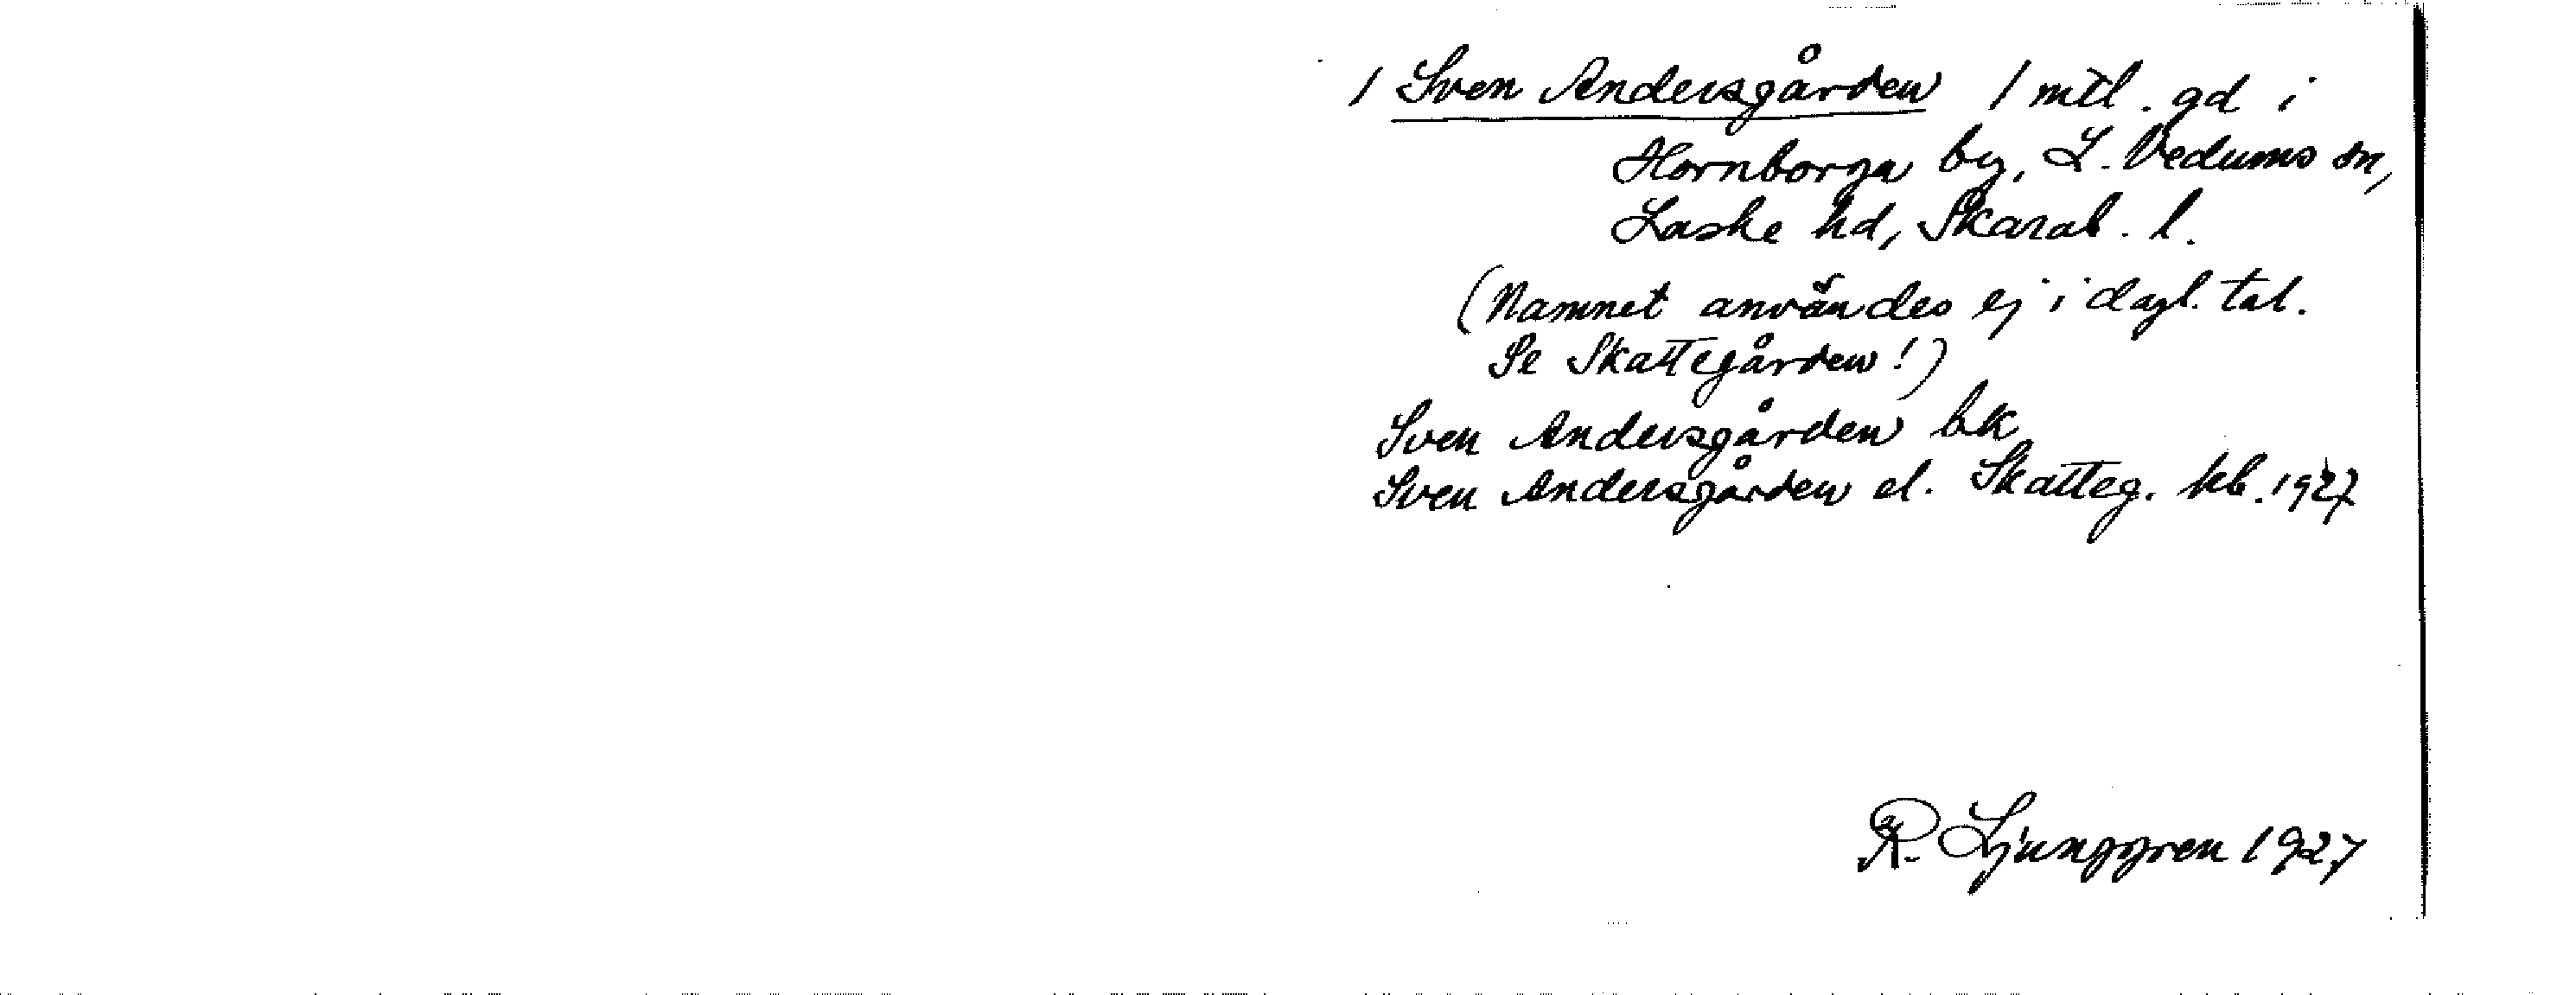 1 Sven Andersgården 1 mtl. gd i
Hornborga by, L. Vedums sn,
Laske hd, Skarab. l.
(Namnet användes ej i dagl. tal.
Se Skattegården!)
Sven Andersgården bk
Sven Andersgården el. Skatteg. kb. 1927
R. Ljunggren 1927